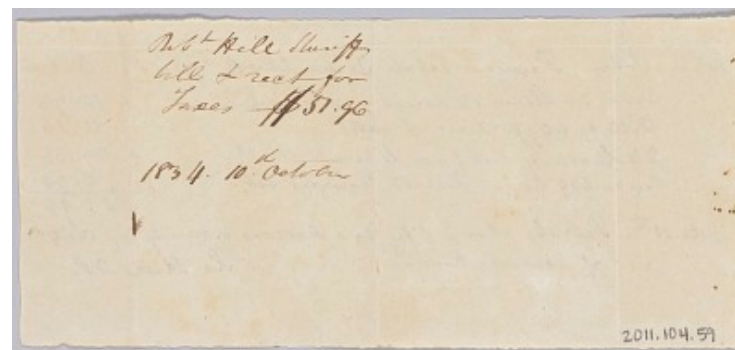 Robt Hill Sheriff
bill & rect for
Taxes $51.96
1834. 10th October
2011.104.59